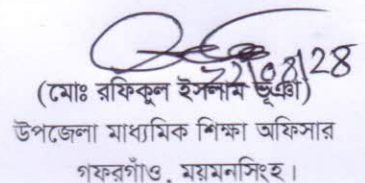 (মোঃ রফিকুল ইসলাম ভূঞা)
উপজেলা মাধ্যমিক শিক্ষা অফিসার
গফরগাঁও, ময়মনসিংহ।